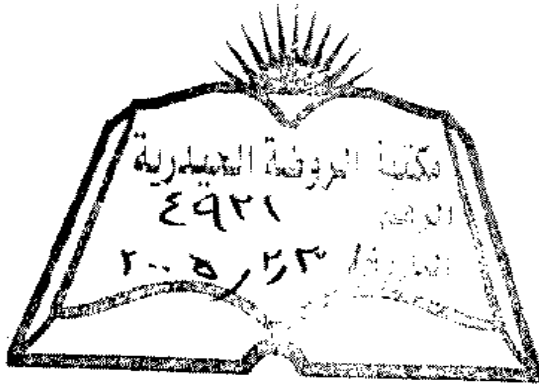 مكتبة الروضة الحيدرية
الرقم ٤٩٢١
التاريخ /